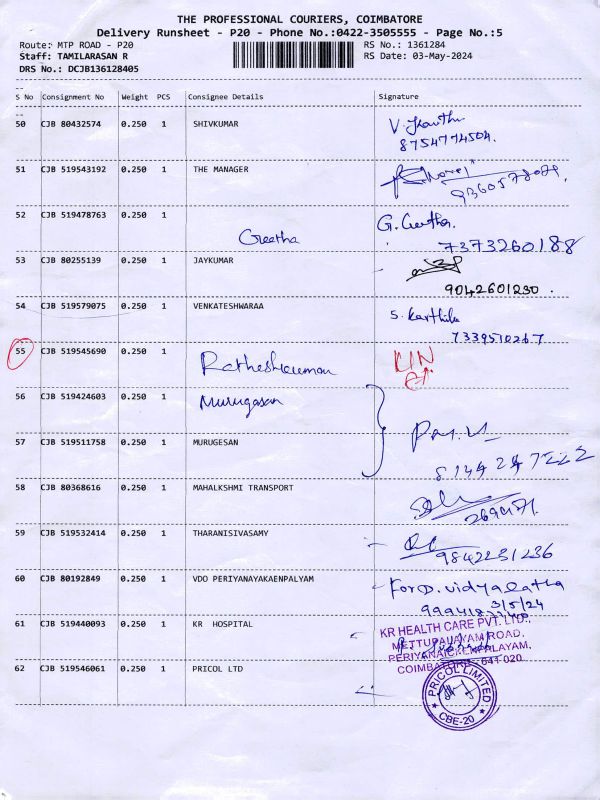 THE PROFESSIONAL COURIERS, COIMBATORE
Delivery Runsheet - P20 - Phone No.:0422-3505555 - Page No.:5
Route: MTP ROAD - P20 RS No.: 1361284
Staff: TAMILARASAN R RS Date: 03-May-2024
DRS No.: DCJB136128405
S No Consignment No Weight PCS Consignee Details Signature
50 CJB 80432574 0.250 1 SHIVKUMAR V.
8754774504.
51 CJB 519543192 0.250 1 THE MANAGER
52 CJB 519478763 0.250 1 G. Geetha.
Geetha 7373260188
53 CJB 80255139 0.250 1 JAYKUMAR
9042601230.
54 CJB 519579075 0.250 1 VENKATESHWARAA S. Karthik
7339510267
55 CJB 519545690 0.250 1
56 CJB 519424603 0.250 1 Murugasan
57 CJB 519511758 0.250 1 MURUGESAN
58 CJB 80368616 0.250 1 MAHALKSHMI TRANSPORT
59 CJB 519532414 0.250 1 THARANISIVASAMY
9842231236
60 CJB 80192849 0.250 1 VDO PERIYANAYAKAENPALYAM For D. vidyalatha
3/5/24
61 CJB 519440093 0.250 1 KR HOSPITAL
KR HEALTH CARE PVT. LTD.,
METTUPALAYAM ROAD,
PERIYANAICKENPALAYAM,
COIMBATORE - 641 020
62 CJB 519546061 0.250 1 PRICOL LTD
PRICOL LIMITED
CBE-20